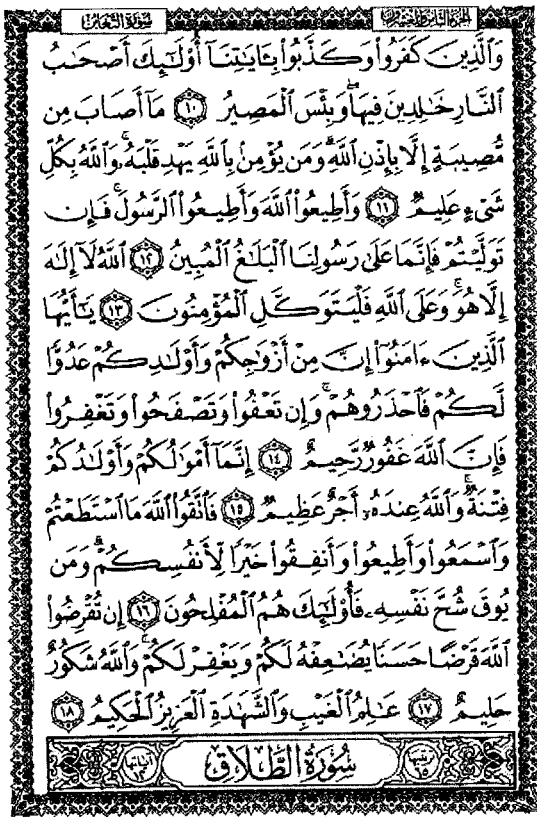 الجزء الثامن والعشرون سورة التغابن
وَالَّذِينَ كَفَرُوا۟ وَكَذَّبُوا۟ بِـَٔايَـٰتِنَآ أُو۟لَـٰٓئِكَ أَصْحَـٰبُ
النَّارِ خَـٰلِدِينَ فِيهَا ۖ وَبِئْسَ الْمَصِيرُ ١٠ مَآ أَصَابَ مِن
مُّصِيبَةٍ إِلَّا بِإِذْنِ اللَّهِ ۗ وَمَن يُؤْمِنۢ بِاللَّهِ يَهْدِ قَلْبَهُۥ ۚ وَاللَّهُ بِكُلِّ
شَىْءٍ عَلِيمٌ ١١ وَأَطِيعُوا۟ اللَّهَ وَأَطِيعُوا۟ الرَّسُولَ ۚ فَإِن
تَوَلَّيْتُمْ فَإِنَّمَا عَلَىٰ رَسُولِنَا الْبَلَـٰغُ الْمُبِينُ ١٢ اللَّهُ لَآ إِلَـٰهَ
إِلَّا هُوَ ۚ وَعَلَى اللَّهِ فَلْيَتَوَكَّلِ الْمُؤْمِنُونَ ١٣ يَـٰٓأَيُّهَا
الَّذِينَ ءَامَنُوٓا۟ إِنَّ مِنْ أَزْوَٰجِكُمْ وَأَوْلَـٰدِكُمْ عَدُوًّا
لَّكُمْ فَاحْذَرُوهُمْ ۚ وَإِن تَعْفُوا۟ وَتَصْفَحُوا۟ وَتَغْفِرُوا۟
فَإِنَّ اللَّهَ غَفُورٌ رَّحِيمٌ ١٤ إِنَّمَآ أَمْوَٰلُكُمْ وَأَوْلَـٰدُكُمْ
فِتْنَةٌ ۚ وَاللَّهُ عِندَهُۥٓ أَجْرٌ عَظِيمٌ ١٥ فَاتَّقُوا۟ اللَّهَ مَا اسْتَطَعْتُمْ
وَاسْمَعُوا۟ وَأَطِيعُوا۟ وَأَنفِقُوا۟ خَيْرًا لِّأَنفُسِكُمْ ۗ وَمَن
يُوقَ شُحَّ نَفْسِهِۦ فَأُو۟لَـٰٓئِكَ هُمُ الْمُفْلِحُونَ ١٦ إِن تُقْرِضُوا۟
اللَّهَ قَرْضًا حَسَنًا يُضَـٰعِفْهُ لَكُمْ وَيَغْفِرْ لَكُمْ ۚ وَاللَّهُ شَكُورٌ
حَلِيمٌ ١٧ عَـٰلِمُ الْغَيْبِ وَالشَّهَـٰدَةِ الْعَزِيزُ الْحَكِيمُ ١٨
سُورَةُ الطَّلَاقِ